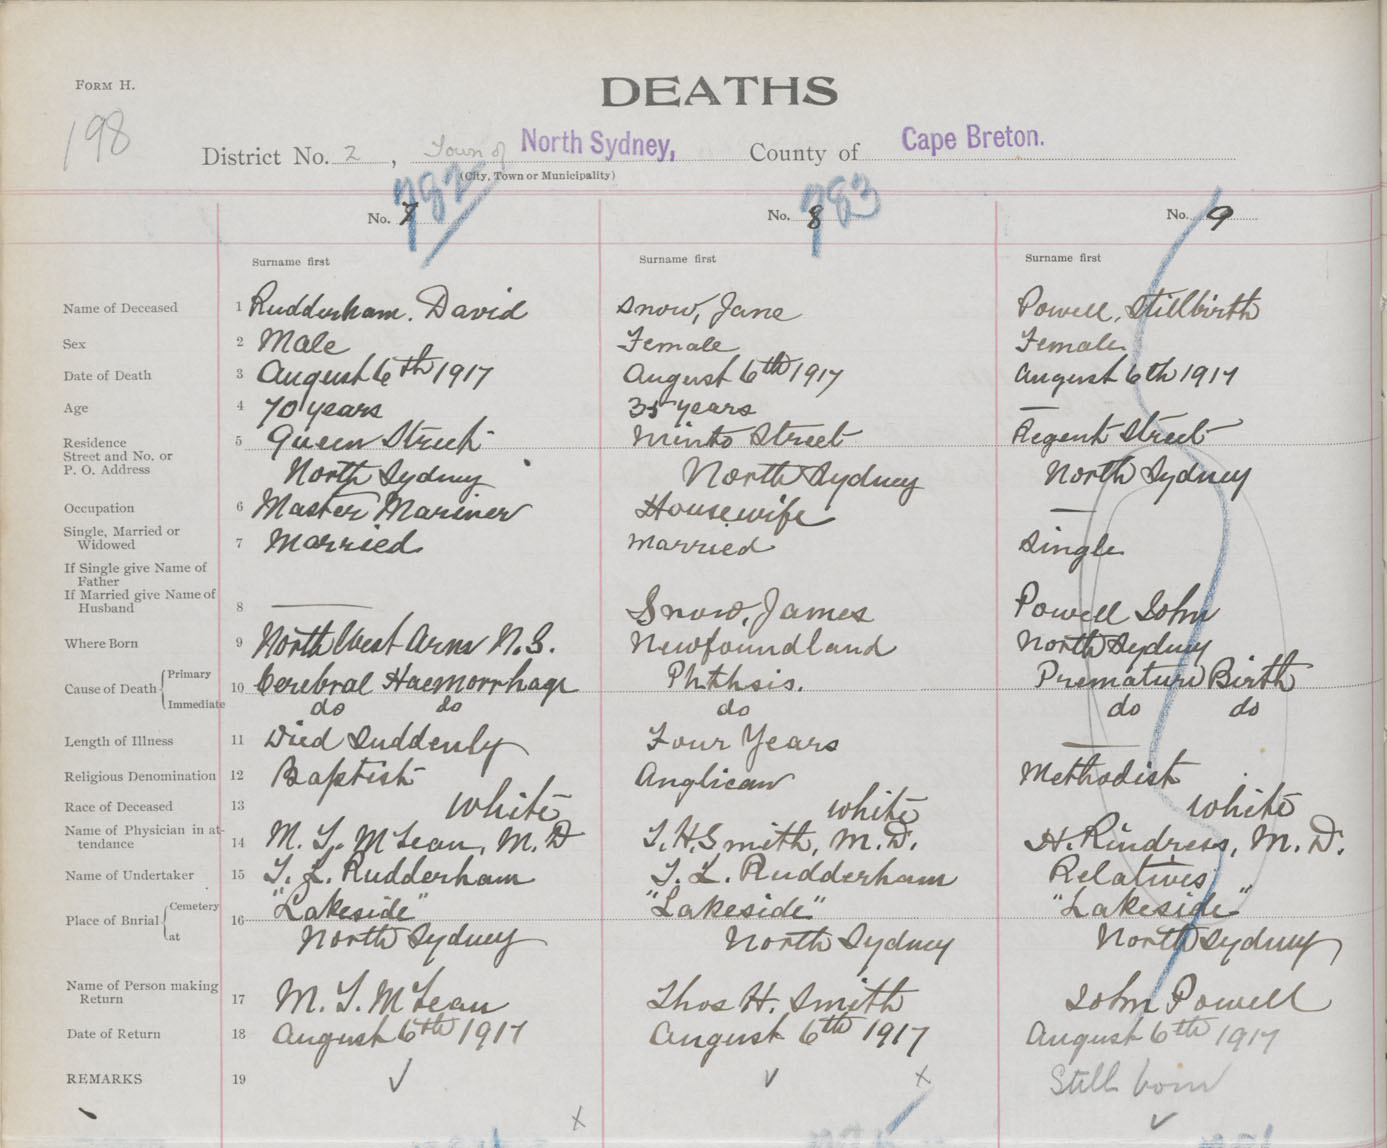 FORM H.
DEATHS
198
District No. 2, Town of North Sydney, County of Cape Breton.
(City, Town or Municipality)
782 783
No. 7 No. 8 No. 9
Surname first Surname first Surname first
Name of Deceased 1 Rudderham. David Snow, Jane Powell, Stillbirth
Sex 2 Male Female Female
Date of Death 3 August 6th 1917 August 6th 1917 August 6th 1917
Age 4 70 years 35 years —
Residence 5 Queen Street Minto Street Regent Street
Street and No. or
P. O. Address North Sydney North Sydney North Sydney
Occupation 6 Master Mariner Housewife —
Single, Married or
Widowed 7 Married Married Single
If Single give Name of
Father
If Married give Name of
Husband 8 — Snow, James Powell John
Where Born 9 North West Arm N.S. Newfoundland North Sydney
Cause of Death Primary 10 Cerebral Haemorrhage Phthsis. Premature Birth
Immediate do do do do do
Length of Illness 11 Died Suddenly Four Years —
Religious Denomination 12 Baptist Anglican Methodist
Race of Deceased 13 White White White
Name of Physician in at-
tendance 14 M. T. McLean, M.D T.H. Smith, M.D. H. Rindress, M.D.
Name of Undertaker 15 T. L. Rudderham T. L. Rudderham Relatives
Place of Burial Cemetery 16 "Lakeside" "Lakeside" "Lakeside"
at North Sydney North Sydney North Sydney
Name of Person making
Return 17 M. T. McLean Thos H. Smith John Powell
Date of Return 18 August 6th 1917 August 6th 1917 August 6th 1917
REMARKS 19 ✓ ✓ x Still born
x ✓